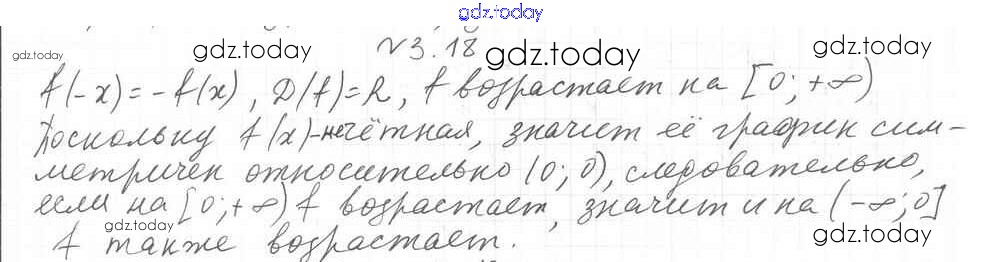 gdz.today
gdz.today gdz.today № 3.18 gdz.today gdz.today
f(-x) = -f(x), D(f)=R, f возрастает на [0; +∞)
Поскольку f(x)-нечётная, значит её график сим-
метричен относительно (0; 0), следовательно,
если на [0; +∞) f возрастает, значит и на (-∞; 0]
f также возрастает.
gdz.today gdz.today gdz.today